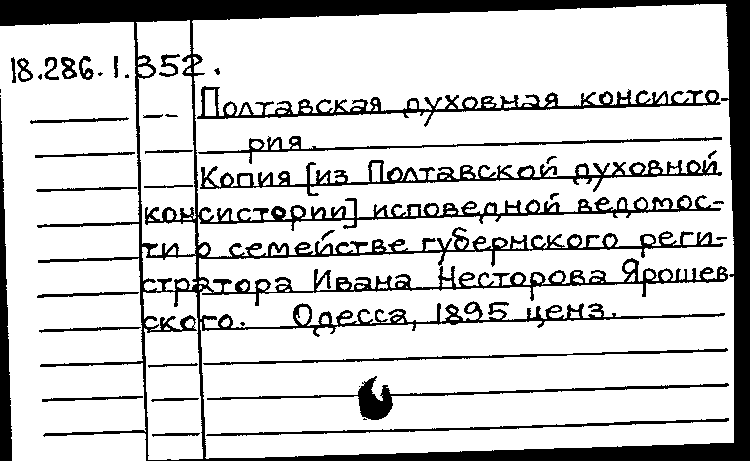 18.286.1.352.
Полтавская духовная консисто-
рия.
Копия [из Полтавской духовной
консистории] исповедной ведомос-
ти о семействе губернского реги-
стратора Ивана Несторова Ярошев-
ского. Одесса, 1895 ценз.